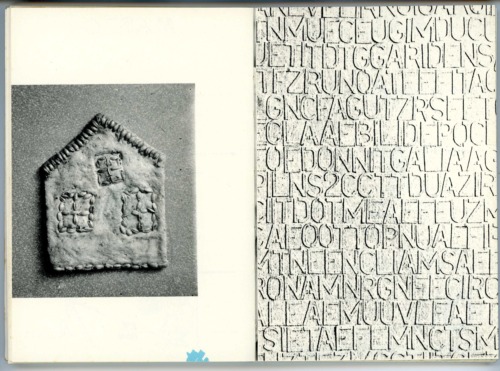 ENMUECEUGIMDUCU
UETITDTGGARIDENS
TEZRUNOATEFEITAC
GNCFAGUTZRSEET
CLAAEBILIDEPOCI
TOEDONNITGALIAAG
PIENS2CCTTDUAZIR
CITDOTMEAEFFUZR
AEOOTTOPNUAEFIR
ZTINEENCLIAMSAEF
RONAMNRGNEFECIRC
LFAEMUUVLEAET
SIETAEFEMNCTSM